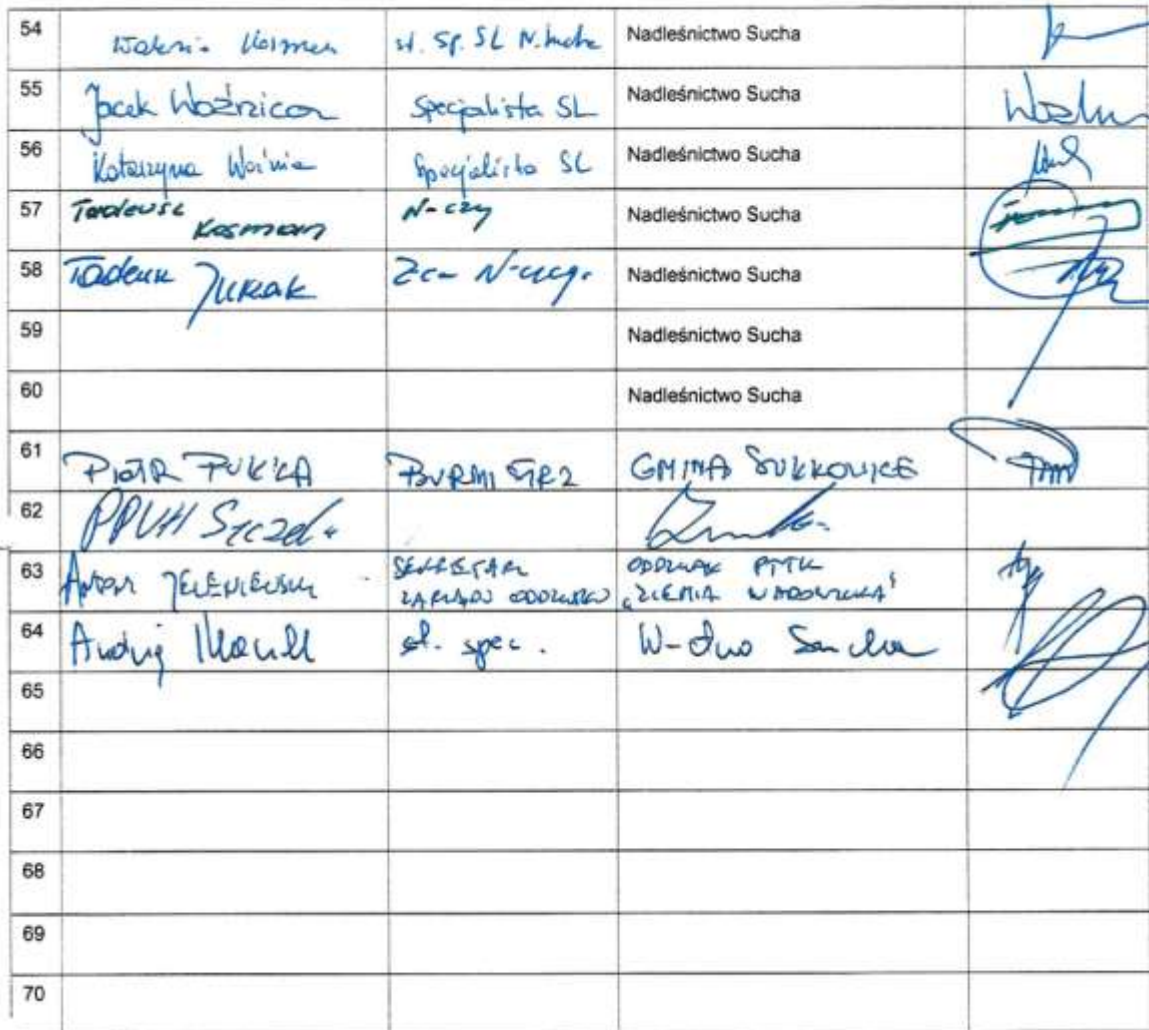 54 Kosman st. sp. SL N. Sucha Nadleśnictwo Sucha
55 Jacek Woźniczka Specjalista SL Nadleśnictwo Sucha
56 Katarzyna Woźnia Specjalista SL Nadleśnictwo Sucha
57 Tadeusz Kosman N-czy Nadleśnictwo Sucha
58 Tadeusz Jurzak Z-ca N-czego Nadleśnictwo Sucha
59 Nadleśnictwo Sucha
60 Nadleśnictwo Sucha
61 PIOTR PUŁKA BURMISTRZ GMINA SUŁKOWICE
62 PPUH
63 SEKRETARZ ODDZIAŁ PTTK
ZARZĄDU ODDZIAŁU „ZIEMIA WADOWICKA"
64 st. spec. N-ctwo Sucha
65
66
67
68
69
70